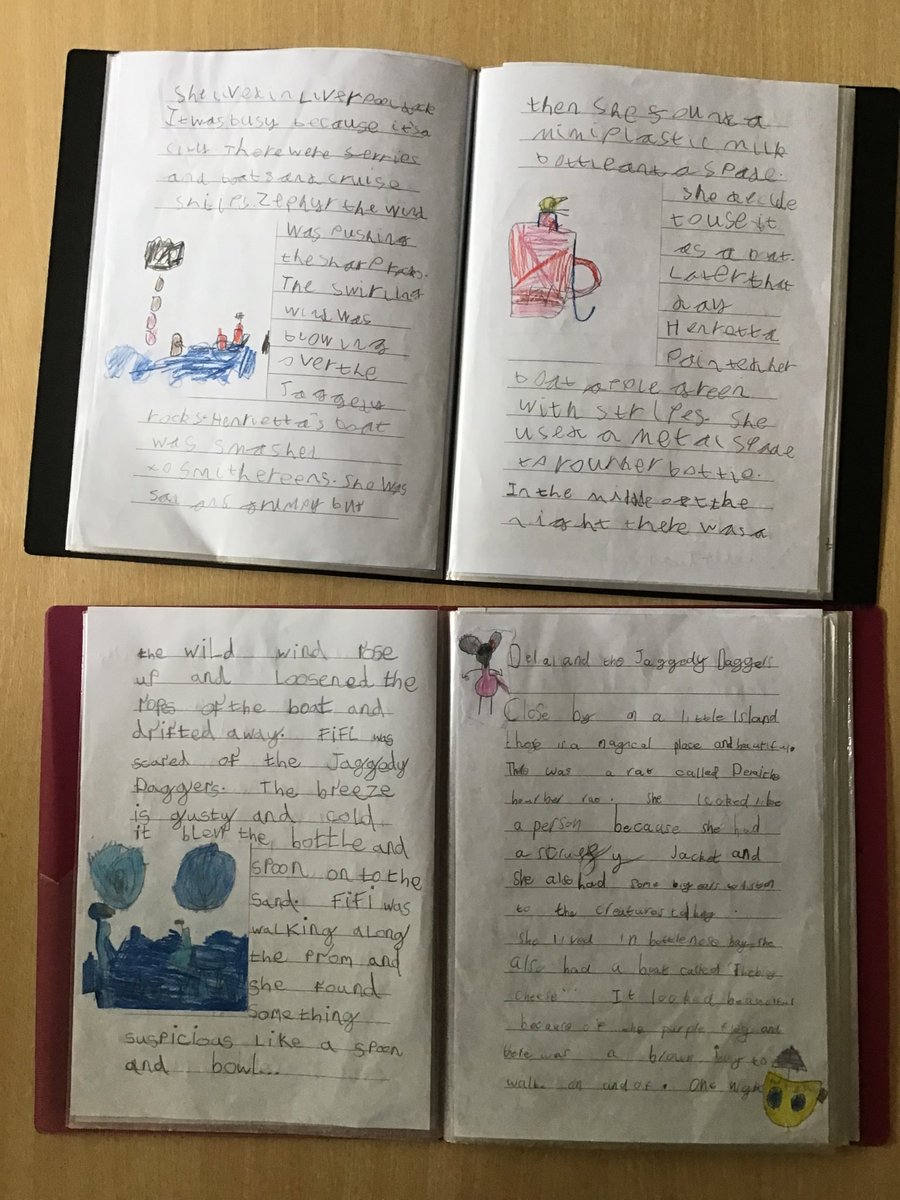 She lives in Liverpool dock
It was busy because it's a
city. There were ferries
and boats and cruise
ships. Zephyr the wind
was pushing
the sharp rocks.
The swirling
wind was
blowing
over the
Jaggedy
rocks. Henrietta's boat
was smashed
to smithereens. She was
sad and grumpy but
then she found a
mini plastic milk
bottle and a spade.
she decide
to use it
as a boat.
Later that
day
Henretta
painted her
boat apple green
with stripes. she
used a metal spade
to round her bottle.
In the middle of the
night there was a
the wild wind rose
up and loosened the
rops of the boat and
drifted away. FiFi was
scared of the Jaggedy
Daggers. The breeze
is gusty and cold
it blew the bottle and
spoon on to the
sand. FiFi was
walking along
the prom and
she found
something
suspicious like a spoon
and bowl...
Delal and the Jaggedy Daggers
Close by on a little island
there is a magical place and beautiful.
was a rat called
She looked like
a person because she had
a scruffy Jacket and
she also had some big ears to listen
to the creatures
She lived in bottleness bay. she
also had a boat called
cheese". It looked beautiful
because of the purple flag and
there was a brown to
walk on and of. One night